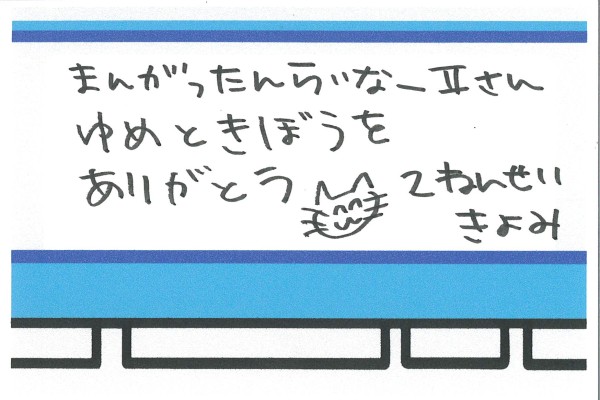 まんがったんらいなーⅡさん
ゆめときぼうを
ありがとう
2ねんせい
きよみ